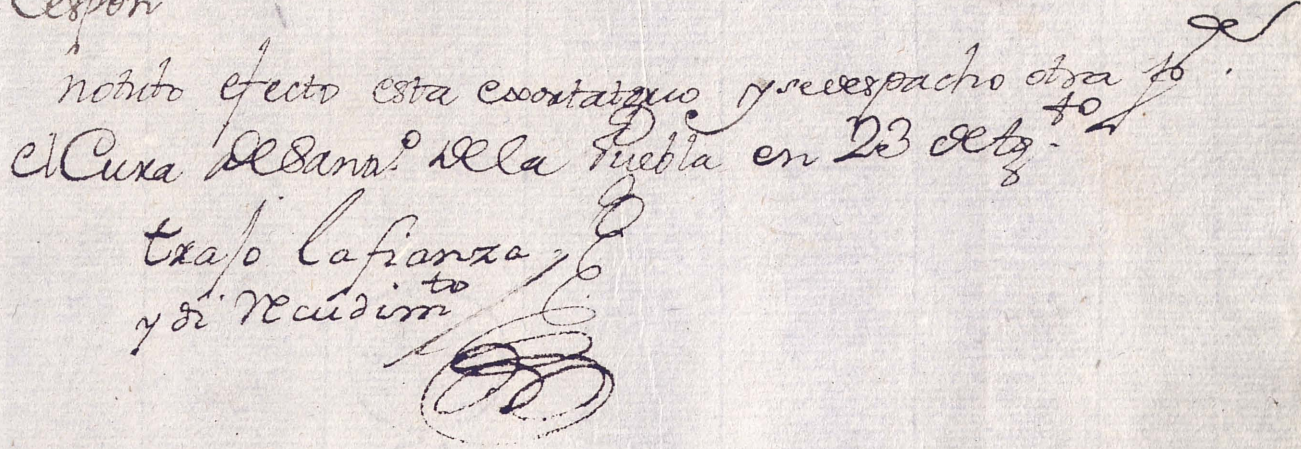 notubo efecto esta exortatorio y sedespacho otra
el Cura de San^n. de la Puebla en 23 de
traJo la fianza
y di Recudim^to